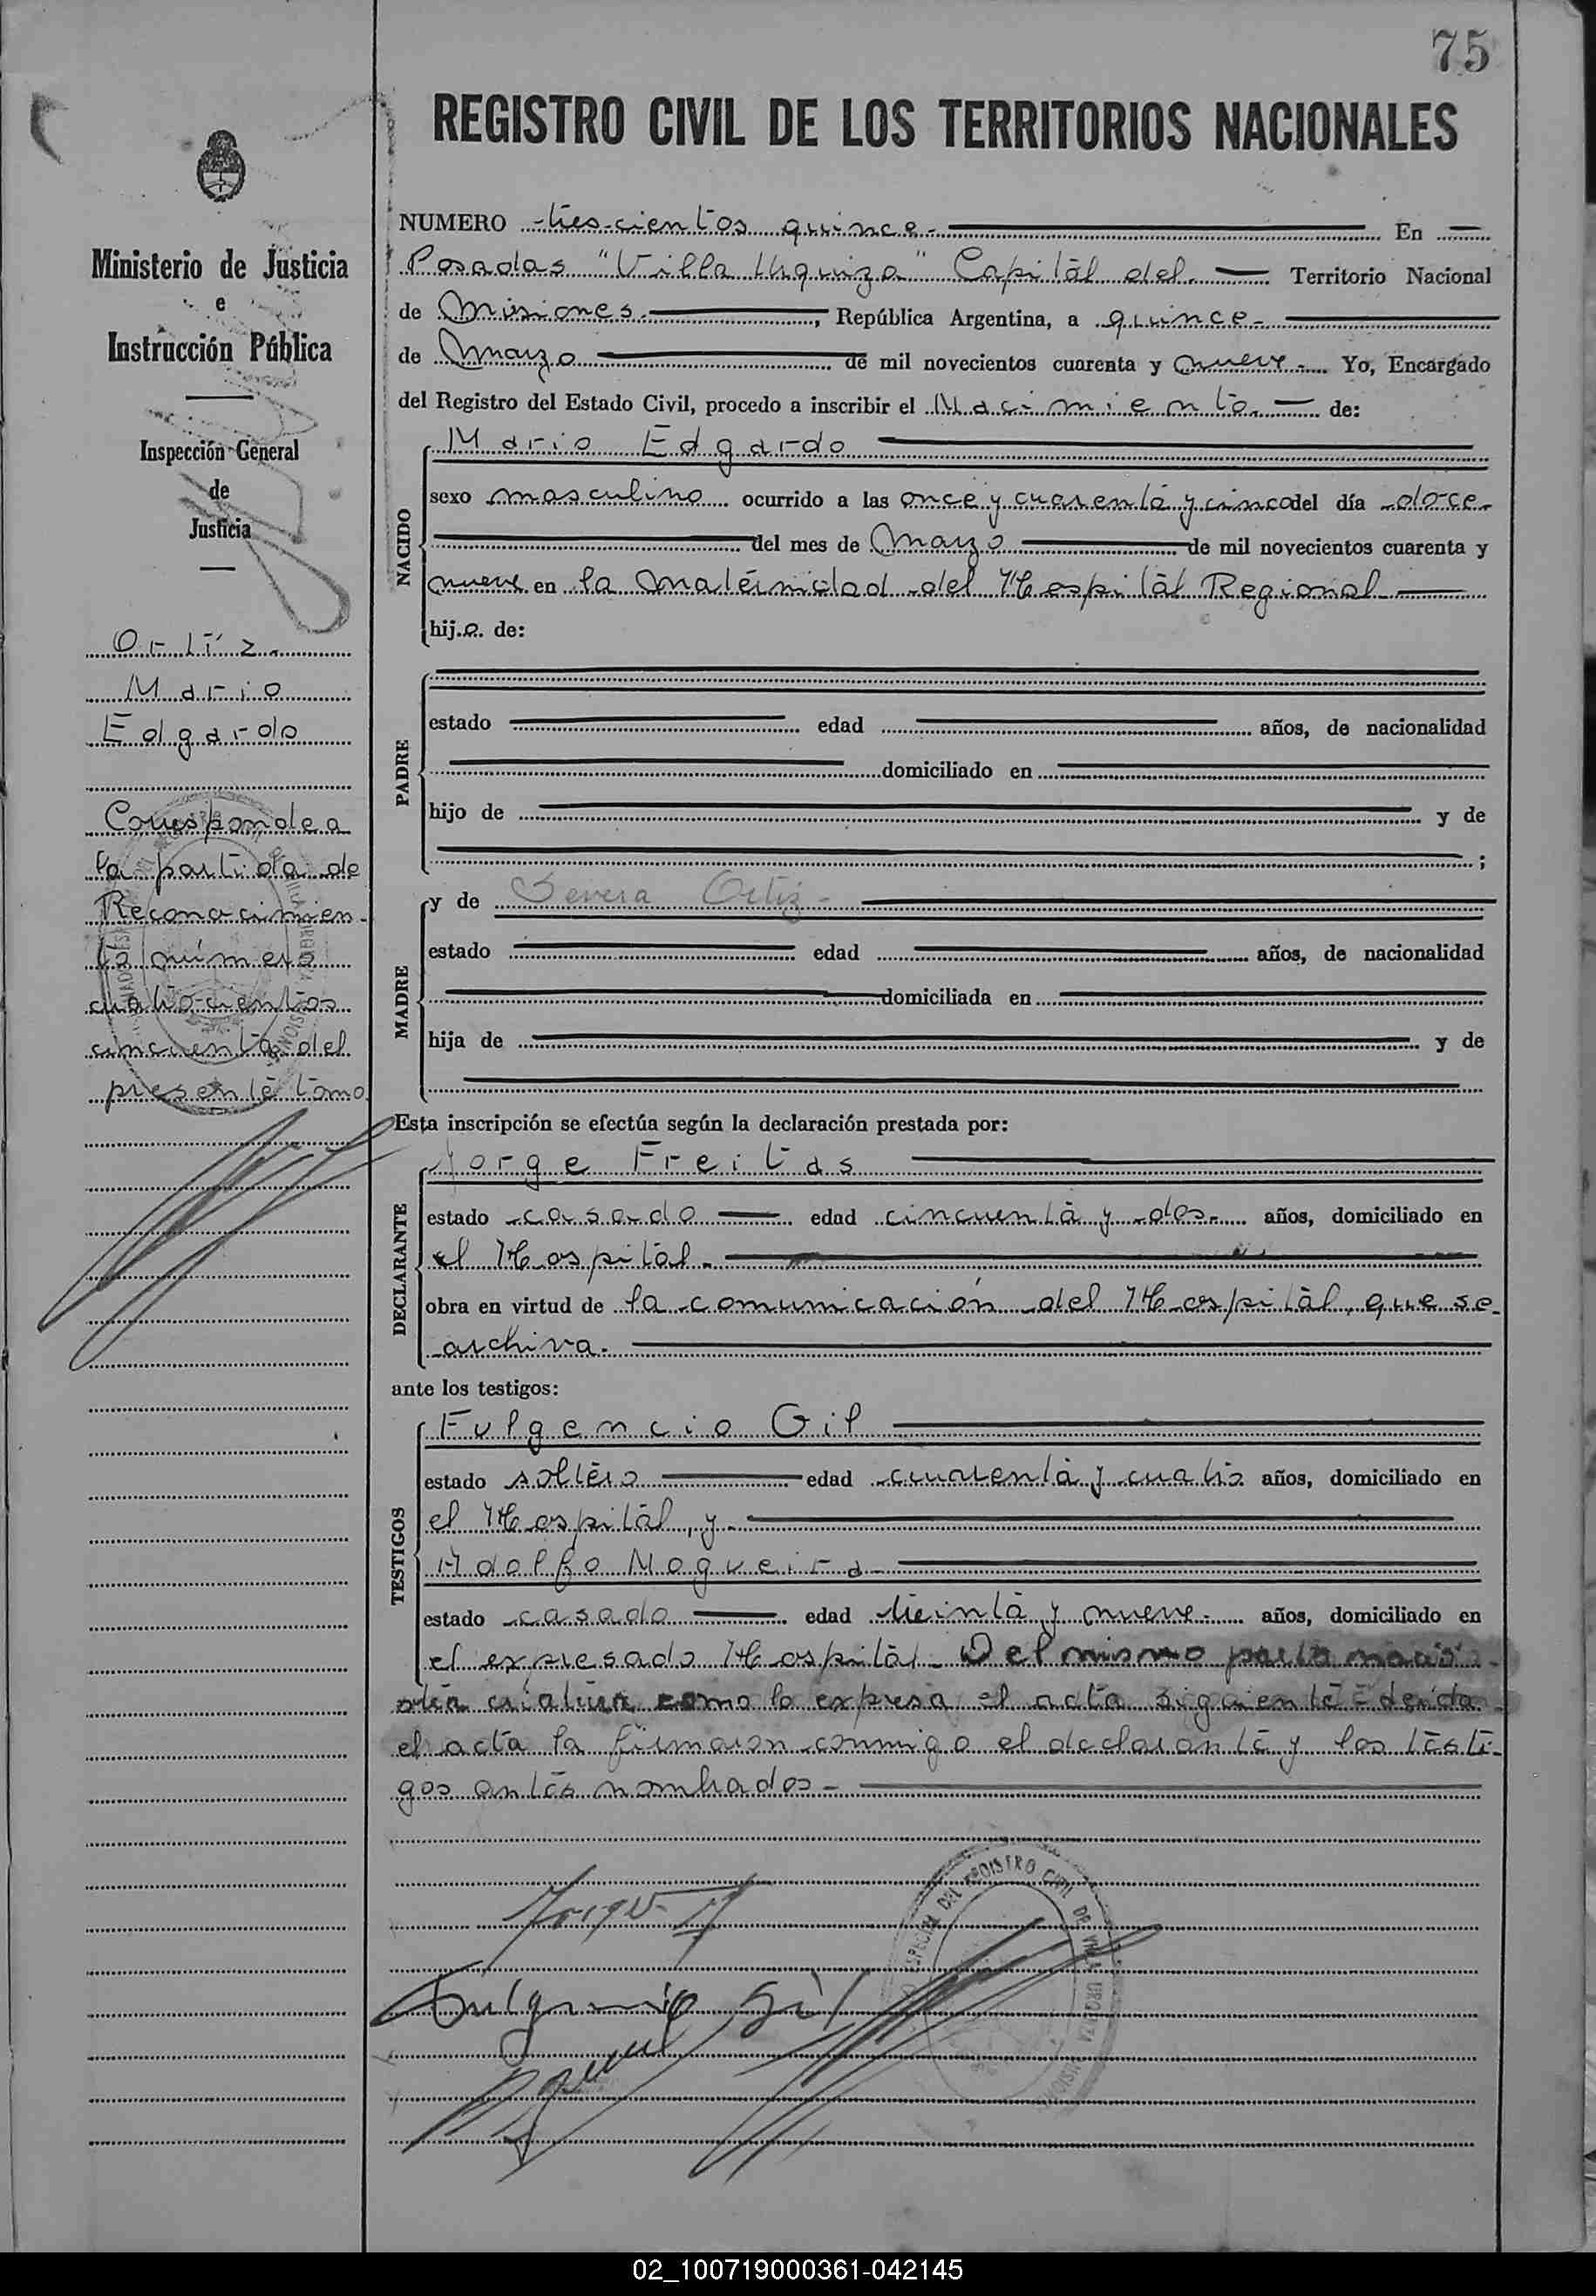 75
REGISTRO CIVIL DE LOS TERRITORIOS NACIONALES
Ministerio de Justicia
e
Instrucción Pública
Inspección General
de
Justicia
Ortíz.
Mario
Edgardo
Corresponde a
la partida de
Reconocimien-
to número
cuatrocientos
cincuenta del
presente tomo.
NUMERO trescientos quince. En
Posadas "Villa Urquiza" Capital del Territorio Nacional
de Misiones, República Argentina, a quince
de Marzo de mil novecientos cuarenta y nueve. Yo, Encargado
del Registro del Estado Civil, procedo a inscribir el Nacimiento. de:
NACIDO
Mario Edgardo
sexo masculino ocurrido a las once y cuarenta y cinco del día doce
del mes de Marzo de mil novecientos cuarenta y
nueve en la maternidad del Hospital Regional
hijo de:
PADRE
estado edad años, de nacionalidad
domiciliado en
hijo de y de
;
MADRE
y de Severa Ortiz
estado edad años, de nacionalidad
domiciliada en
hija de y de
Esta inscripción se efectúa según la declaración prestada por:
DECLARANTE
Jorge Freitas
estado casado edad cincuenta y dos años, domiciliado en
el Hospital.
obra en virtud de la comunicación del Hospital, que se
archiva.
ante los testigos:
TESTIGOS
Fulgencio Gil
estado soltero edad cuarenta y cuatro años, domiciliado en
el Hospital, y
Adolfo Nogueira
estado casado edad treinta y nueve años, domiciliado en
el expresado Hospital. Del mismo parto nació
otra criatura como lo expresa el acta siguiente. Leída
el acta la firmaron conmigo el declarante y los testi-
gos antes nombrados.
Fulgencio Gil
DEL REGISTRO CIVIL DE VILLA URQUIZA
02_100719000361-042145